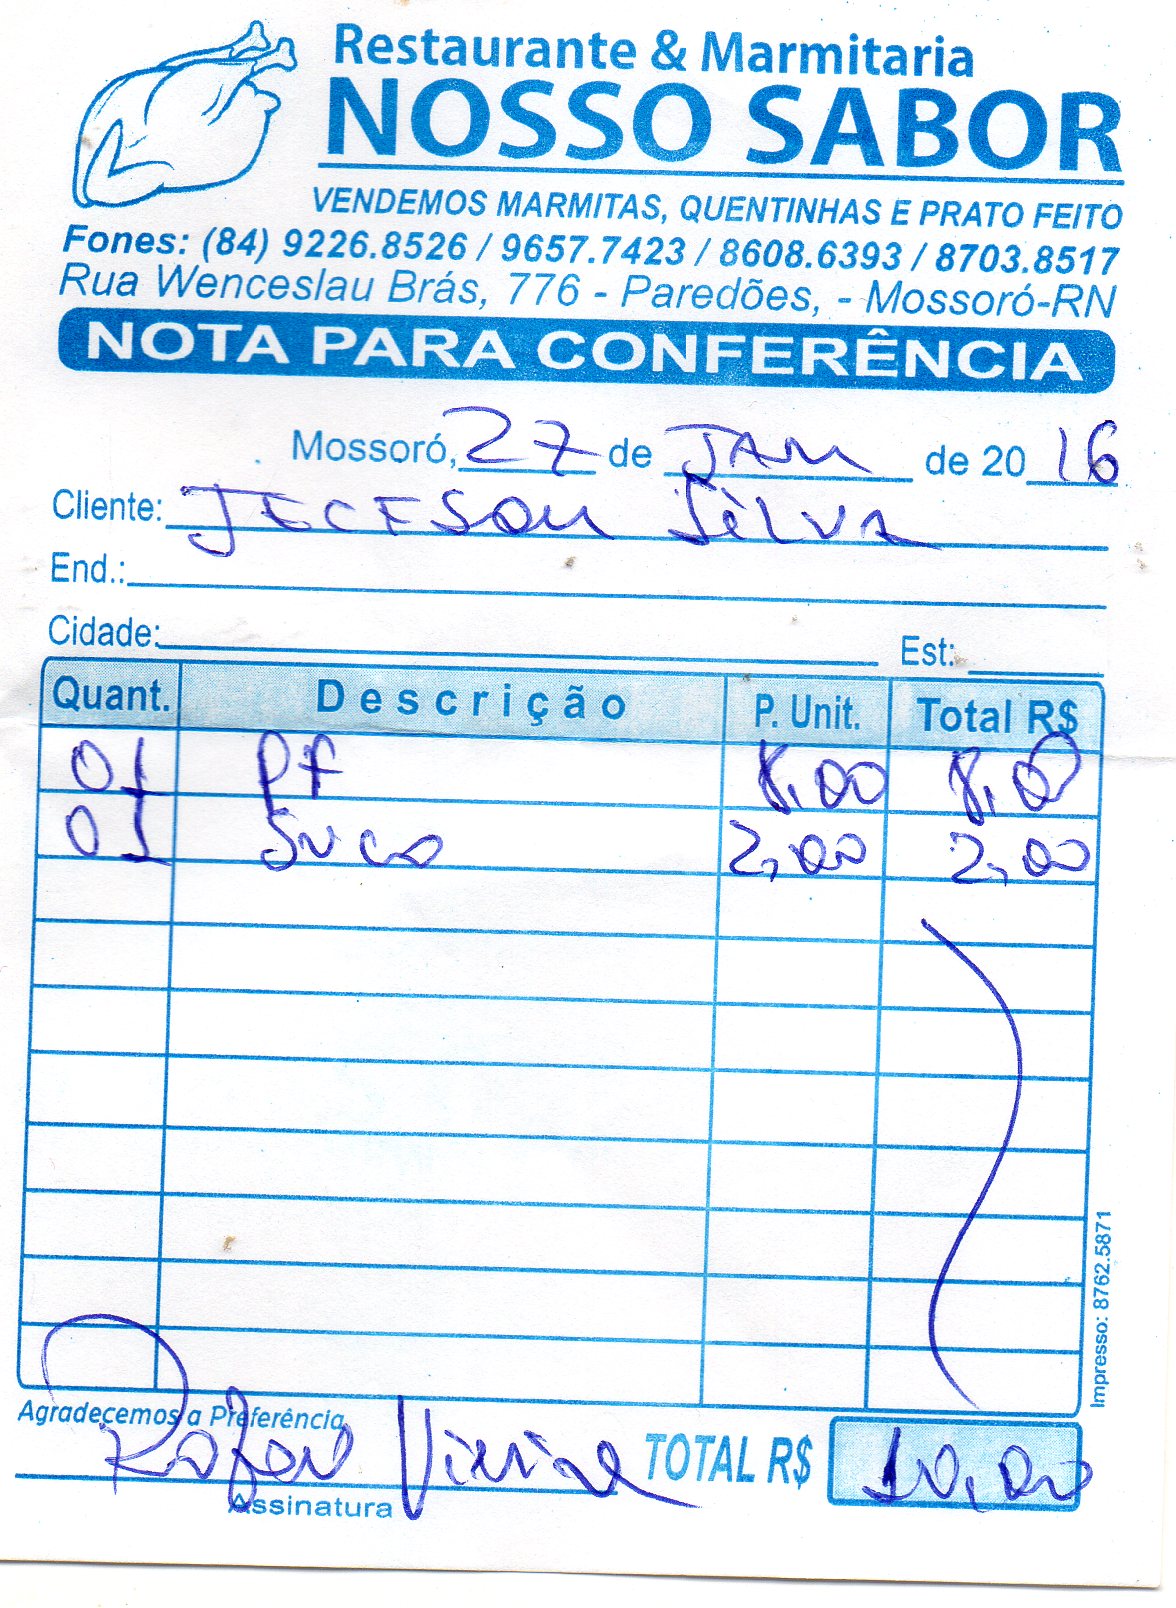 Restaurante & Marmitaria
NOSSO SABOR
VENDEMOS MARMITAS, QUENTINHAS E PRATO FEITO
Fones: (84) 9226.8526 / 9657.7423 / 8608.6393 / 8703.8517
Rua Wenceslau Brás, 776 - Paredões, - Mossoró-RN
NOTA PARA CONFERÊNCIA
Mossoró, 27 de JAN de 20 16
Cliente: JECESON SILVA
End.:
Cidade: Est:
Quant. Descrição P. Unit. Total R$
01 PF 8,00 8,00
01 Suco 2,00 2,00
Impresso: 8762.5871
Agradecemos a Preferência
TOTAL R$ 10,00
Assinatura